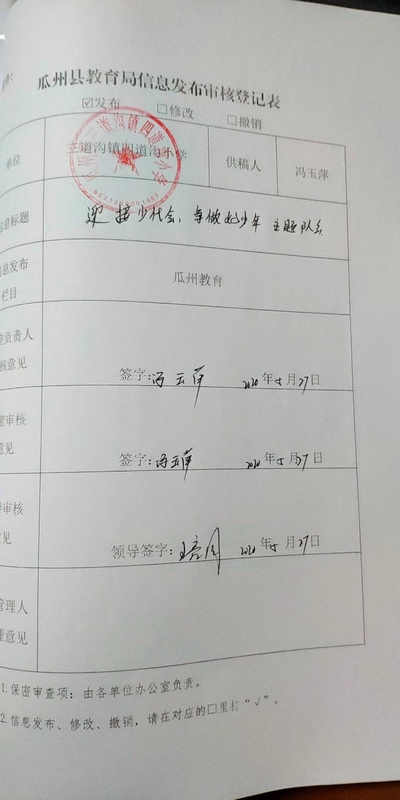 瓜州县教育局信息发布审核登记表
☑发布 □修改 □撤销
单位 三道沟镇四道沟小学 供稿人 冯玉萍
息标题 迎接少代会，争做好少年 主题队会
息发布
栏目 瓜州教育
负责人
核意见
签字: 2020年5月27日
审核
意见
签字: 2020年5月27日
审核
意见
领导签字: 2020年5月27日
管理人
理意见
1.保密审查项：由各单位办公室负责。
2.信息发布、修改、撤销，请在对应的□里打“√”。